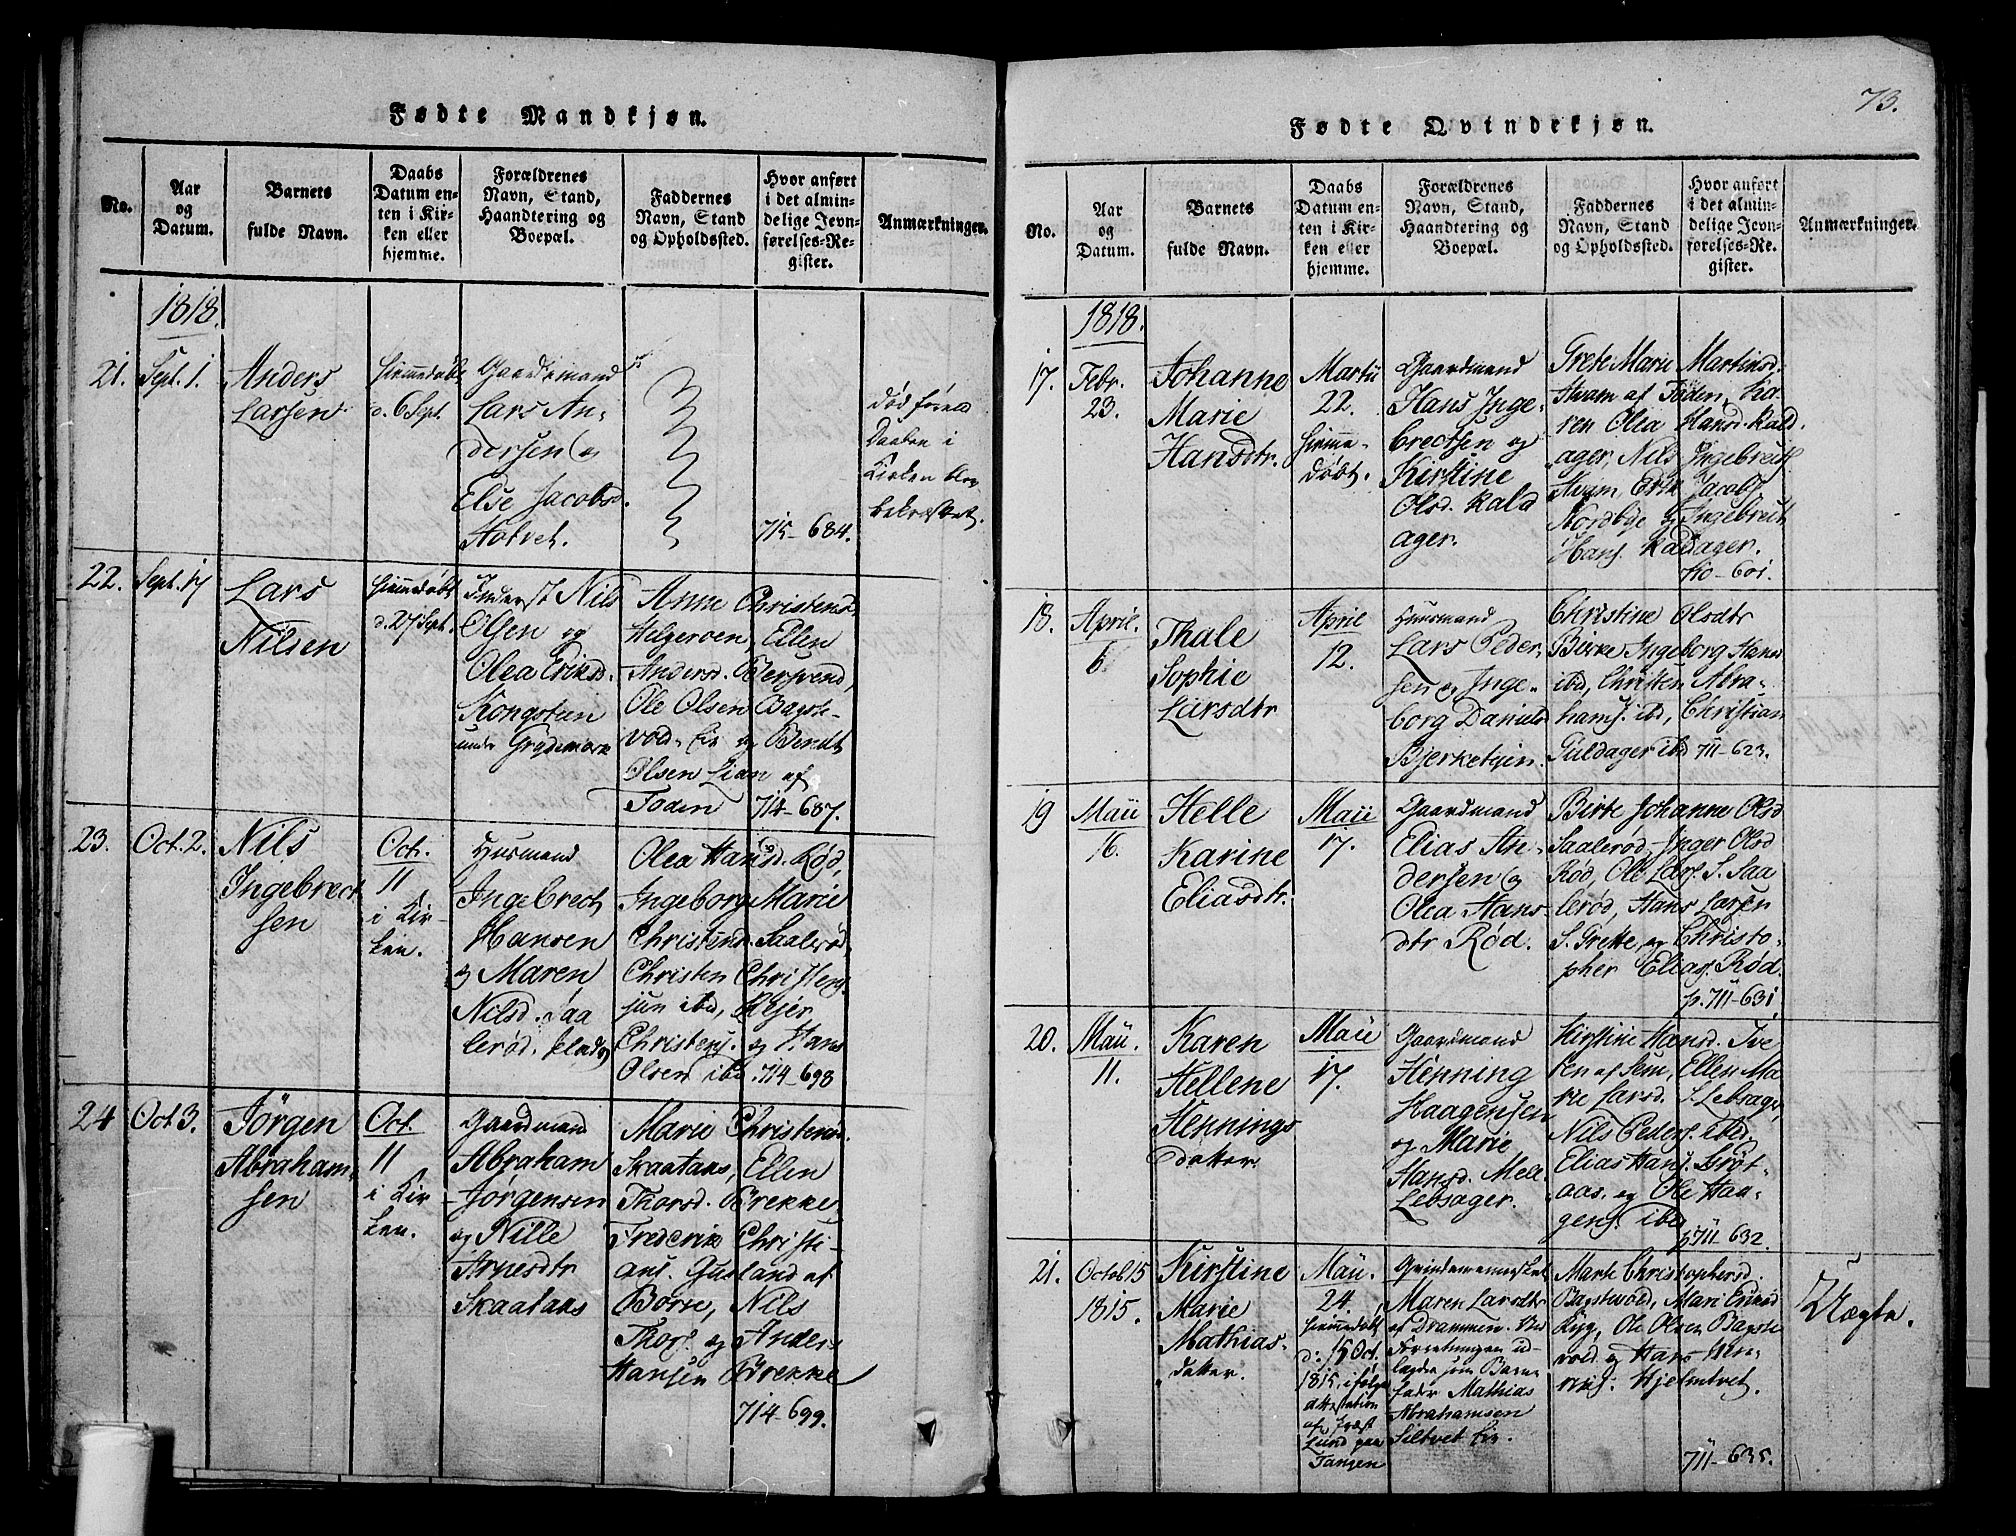 Fødte Mandkjøn.
No.
Aar
og
Datum.
Barnets
fulde Navn.
Daabs
Datum en-
ten i Kir-
ken eller
hjemme.
Forældrenes
Navn, Stand,
Haandtering og
Boepæl.
Faddernes
Navn, Stand
og Opholdssted.
Hvor anført
i det almin-
delige Jevn-
førelses-Re-
gister.
Anmærkninger.
1818.
21.
Sept. 1.
Anders
Larsen
hiemmedøbt
d. 6 Sept.
Gaardmand
Lars An-
dersen og
Else Jacobsd.
død førend
Daaben i
Kirken blev
bekræftet.
715-684.
22.
Sept. 17
Lars
Nilsen
hiemmedøbt
d. 27 Sept.
Inderst Nils
Olsen og
Olea Eriksd.
Kongsteen
under
Anne Christensd.
Helgeroen, Ellen
Andersd.
Ole Olsen Bagste-
vold, og Bendt
Olsen Lian af
714-687.
23.
Oct. 2.
Nils
Ingebrect
sen
Oct.
11
i Kir-
ken.
Husmand
Ingebrect
Hansen
og Maren
Nilsd. Saa
lerød,
Olea Hansd. Rød,
Ingeborg Marie
Christensd. Saalerød,
Christen Christens.
jun ibd, Rejer
Christens. og Hans
Olsen ibd.
714-698
24
Oct 3.
Jörgen
Abraham-
sen
Oct.
11
i Kir
ken.
Gaardmand
Abraham
Jörgensen
og Nille
Arnesdtr
Skaataas
Marie Christensd.
Skaataas, Ellen
Thorsd. Brekke
Frederik Christi-
ans. Gusland af
Borre, Nils
Thors. og Anders
Hansen Brekke
714-699.
73.
Fødte Qvindekjøn.
No.
Aar
og
Datum.
Barnets
fulde Navn.
Daabs
Datum en-
ten i Kir-
ken eller
hjemme.
Forældrenes
Navn, Stand,
Haandtering og
Boepæl.
Faddernes
Navn, Stand
og Opholdssted.
Hvor anført
i det almin-
delige Jevn-
førelses-Re-
gister.
Anmærkninger.
1818.
17.
Febr.
23.
Johanne
Marie
Hansdtr.
Martii
22.
hiemme-
døbt.
Gaardmand
Hans Inge-
brectsen og
Kirstine
Olsd. Kald
ager.
Grete Marie Martinsd.
Hvam af Ka-
ren Olea Hansd. Kald
ager, Nils Ingebrects.
Hvam, Erik Jacobs.
Nordbye og Ingebrect
Hans. Kaldager.
710-601.
18.
April.
6.
Thale
Sophie
Larsdtr
April
12.
Huusmand
Lars Peder-
sen og Inge-
borg Daniels
Christine Olsdtr
Birke, Ingeborg Hansd
ibd, Christen Abra-
hams. ibd, Christian
Guldager ibd
711-623.
19
Maii
16.
Helle
Karine
Eliasdtr.
Maii
17.
Gaardmand
Elias An-
dersen og
Olea Hans-
dtr Rød.
Birte Johanne Olsd
Saalerød, Inger Olsd
Rød, Ole Lars. S. Saa
lerød, Hans Larsen
S. Grette, og Christo-
pher Elias. Rød.
p. 711-631
20.
Maii.
11.
Karen
Hellene
Hennings
datter.
Maii
17.
Gaardmand
Henning
Haagensen
og Marie
Hansd. Mel-
Lebsager.
Kirstine Hansd. Tve
ten af Sem, Ellen Ma
rie Larsd. S. Lebsager,
Nils Peders. ibd.
Elias Hans. Brøt-
aas, og Ole Haa-
gens. ibd
p 711-632.
21.
Octob 15
1815.
Kirstine
Marie
Mathias-
datter.
Maii.
24.
hiemmedøbt
d. 15 Oct.
1815, i følge
attestation
af Præst
Lund paa
Tangen
Qvindemennesket
Maren Larsdtr
af Drammen. Ved
Forretningen ud-
lagde som Barne
fader Mathias
Abrahamsen
Siltvet
Marte Christophersd.
Bagstvold, Mari
Ryg, Ole Olsen Bagste
vold og Hans Hen-
Hjelmtvet.
711-635.
Uægte.